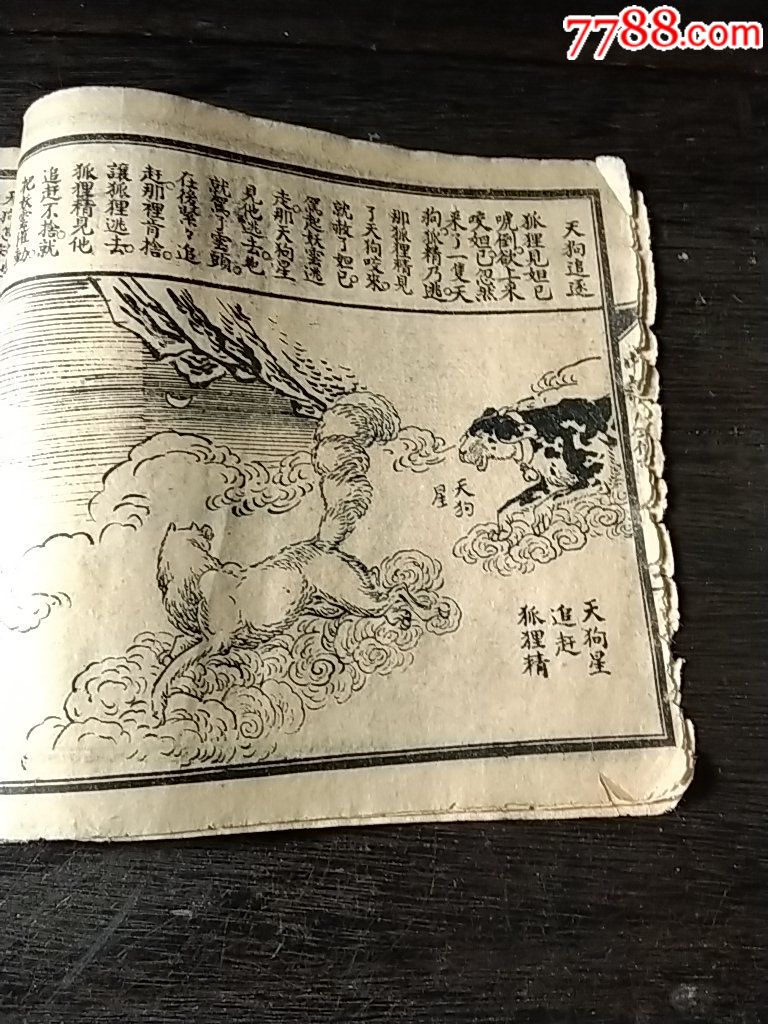 7788.com
天狗追逐
狐狸見妲已
唬倒欲上來
咬妲已忽然
來了一隻天
狗。狐精乃逃
那狐狸精見
了天狗咬來。
就赦了妲已
駕起妖雲逃
走。那天狗星
見他逃去。也
就駕了雲頭
在後緊々追
赶。那裡肯捨
讓狐狸逃去。
狐狸精見他
追赶不捨。就
把妖雲催動
天狗
星
天狗星
追赶
狐狸精